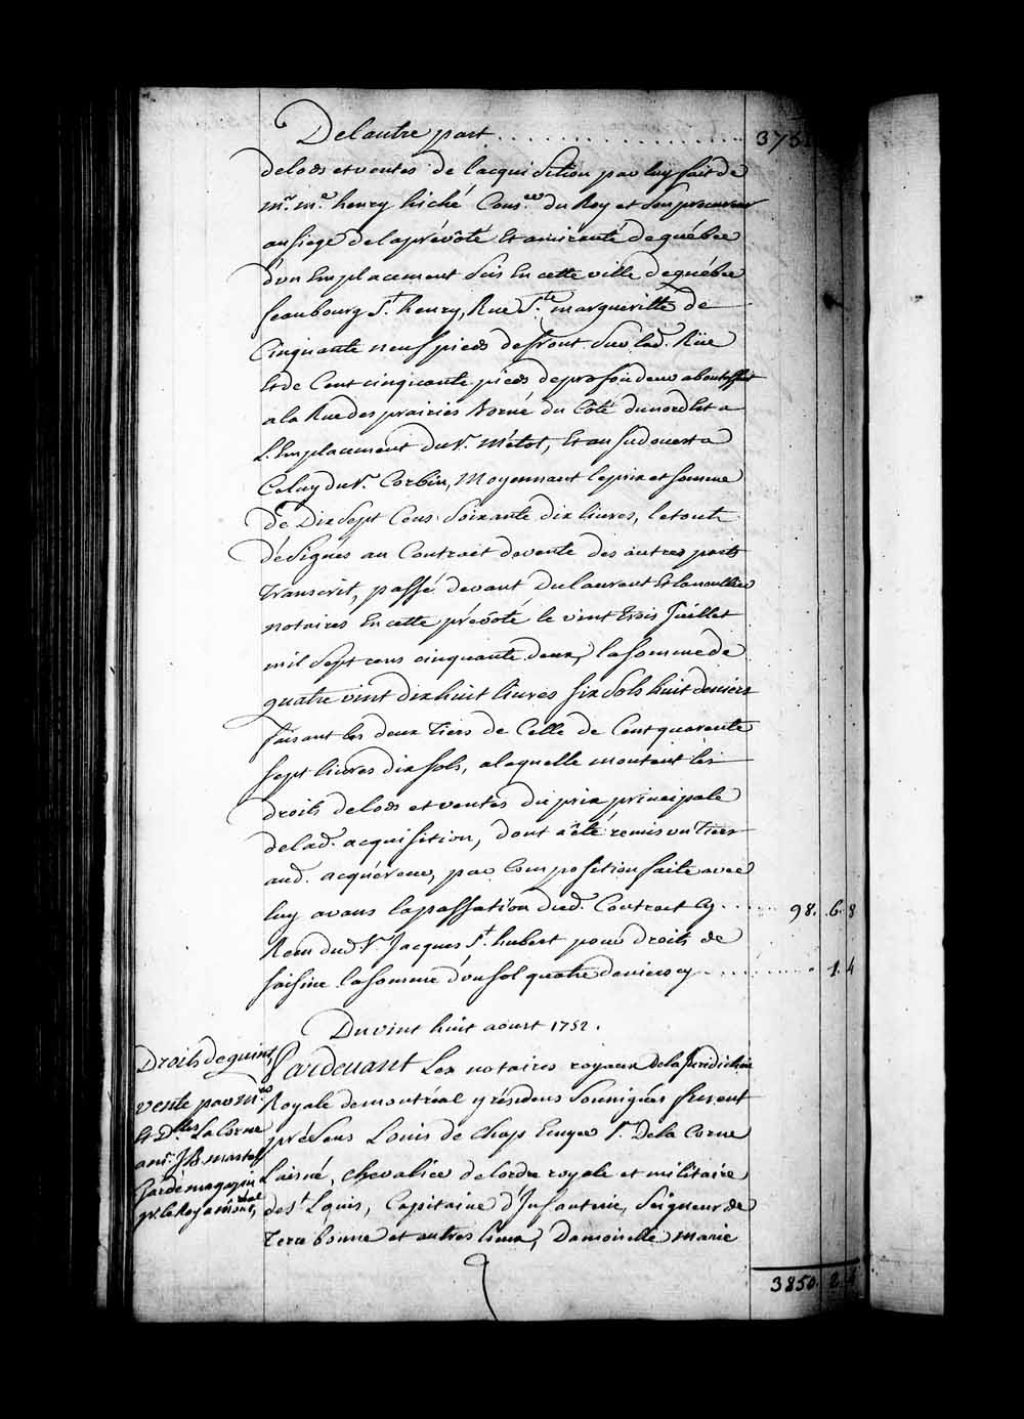 De l'autre part . . . . . . . . . . . . 375
de lods et ventes de l'acquisition par luy fait de
mr. me. henry hiché Conser. du Roy et son procureur
au siege de la prévôté Et amirauté de québec
d'un Emplacement sis En cette ville de québec
feaubourg St. henry, Rue Ste. margueritte de
Cinquante neuf pieds de front sur lad. Rüe
Et de Cent cinquante pieds de profondeur aboutissant
a la Rue des prairies Borné du Côté du nord Est a
L'Emplacement du Sr. Métot, Et au sud ouest a
Celuy du Sr. Corbin, Moyennant le prix et somme
de Dix Sept Cens Soixante dix livres, le tout
désignés au Contract de vente des autres parts
transcrit, passé devant Dulaurent Et
notaires En cette prévôté le vint trois Juillet
mil sept cens cinquante deux, la somme de
quatre vint dix huit livres six sols huit deniers
faisant les deux Tiers de Celle de Cent quarente
sept livres dix sols, a laquelle montent les
droits de lods et ventes du prix principale
de lad. acquisition, dont a êté remis un Tiers
aud. acquéreur, par Composition faite avec
luy avant la passation dud. Contract Cy . . . . . 98. 6. 8
Recu dud Sr. Jacques St. hubert pour droits de
saisine la somme d'un sol quatre deniers cy . . . . . . . 1. 4
Du vint huit aoust 1752.
Droits de quint,
vente par Mr.
Et Dlles LaCorne
a mr. JB. martel
Garde magazin
pr. le Roy a môntréal,
Pardevant Les notaires royaux de la Juridiction
Royale de montréal y résidens Soussignés furent
présens Louis de Chap Ecuyer Sr. De la Corne
L'aisné, chevalier de l'ordre royale et militaire
de St Louis, Capitaine d'Infanterie, Seigneur de
Terrebonne et autres lieux, Damoiselle marie
3850. 2. 4